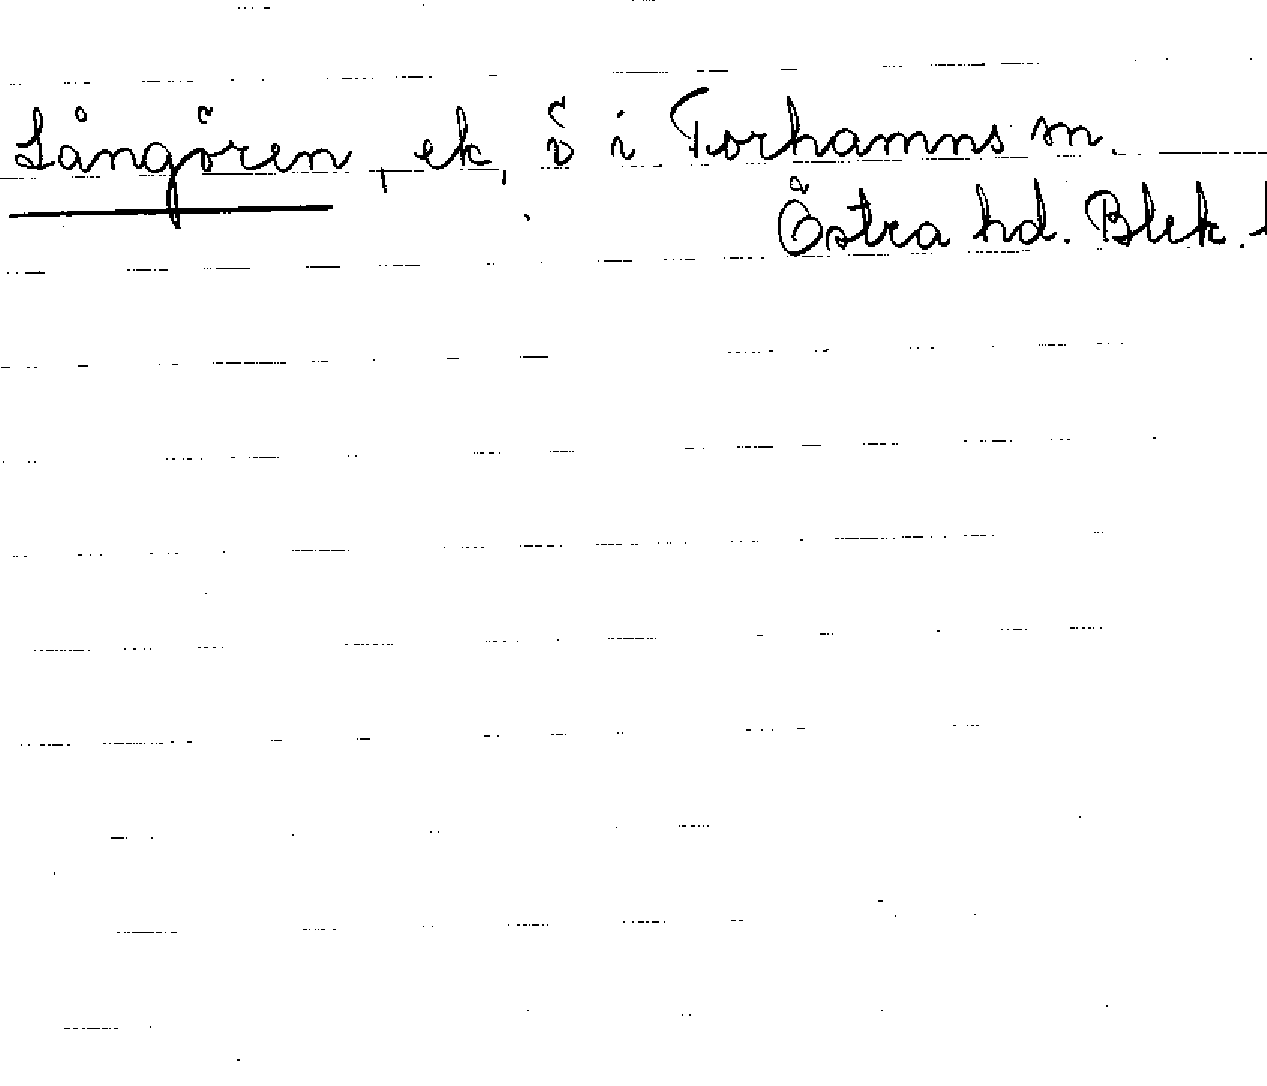 Långören, ek, ö i Torhamns sn.
Östra hd. Blek.